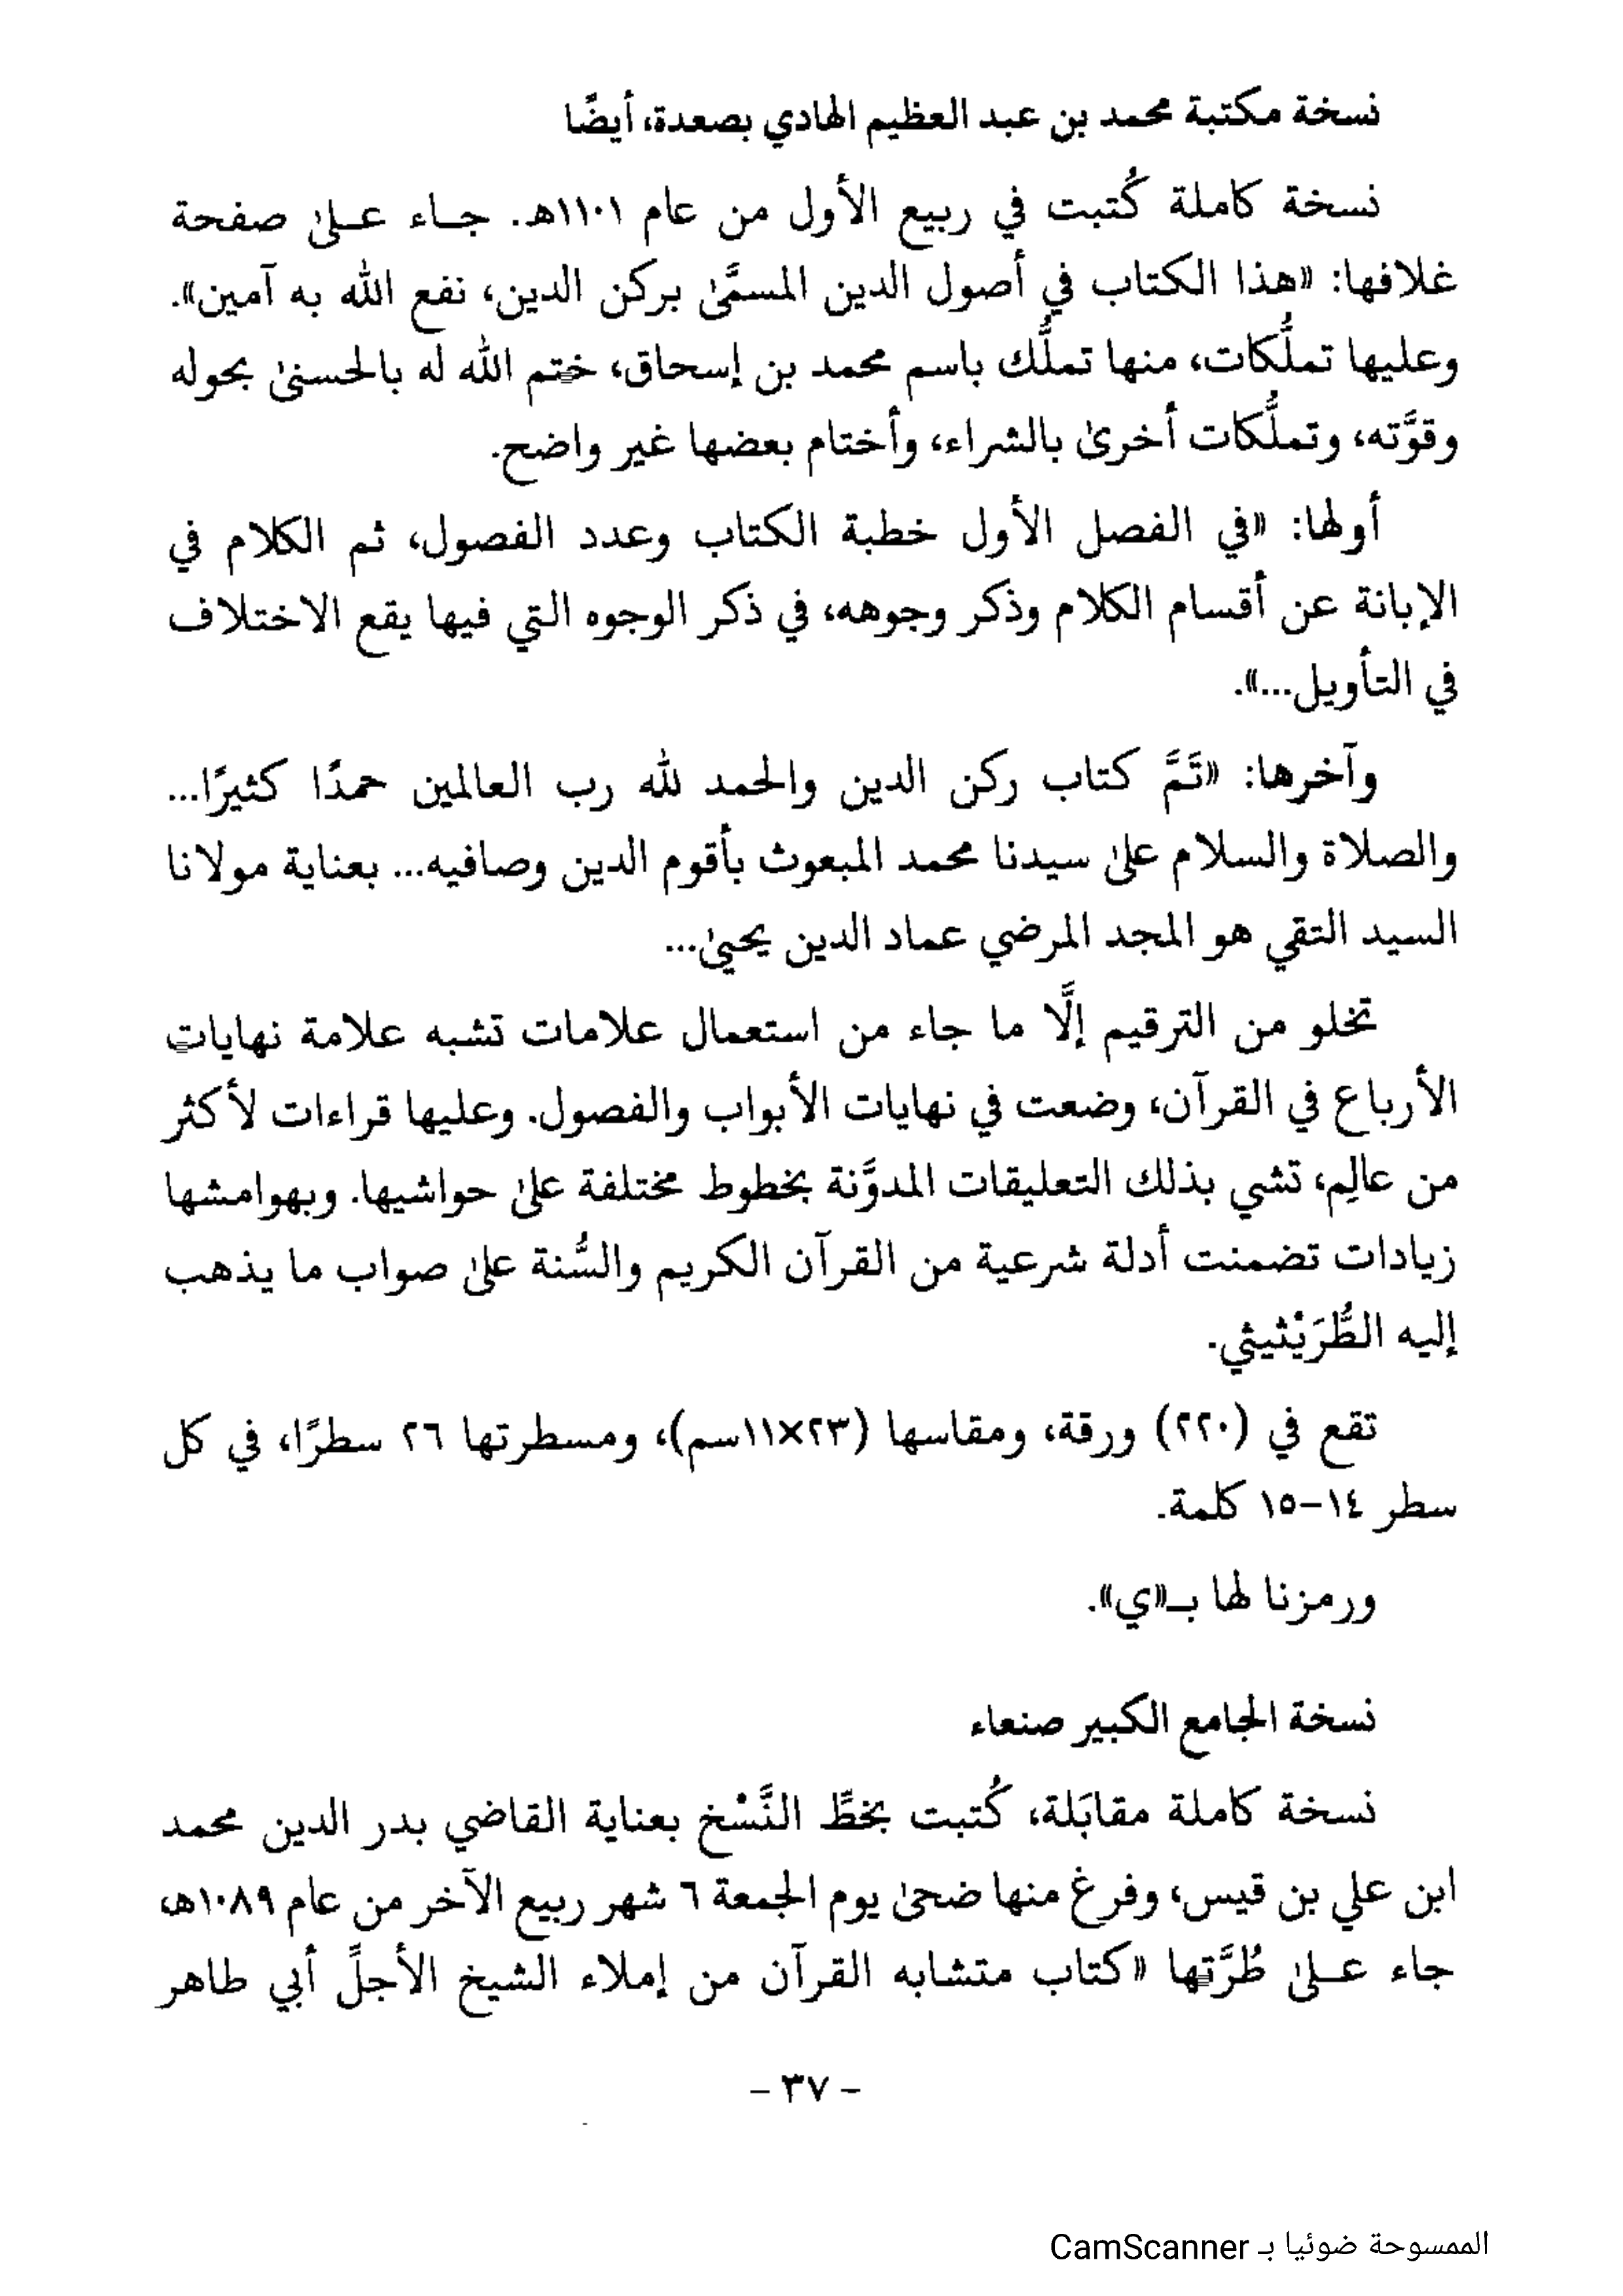 نسخة مكتبة محمد بن عبد العظيم الهادي بصعدة، أيضًا
نسخة كاملة كُتبت في ربيع الأول من عام ١١٠١هـ. جاء علىٰ صفحة
غلافها: «هذا الكتاب في أصول الدين المسمَّىٰ بركن الدين، نفع الله به آمين».
وعليها تملُّكات، منها تملُّك باسم محمد بن إسحاق، ختم الله له بالحسنىٰ بحوله
وقوَّته، وتملُّكات أخرىٰ بالشراء، وأختام بعضها غير واضح.
أولها: «في الفصل الأول خطبة الكتاب وعدد الفصول، ثم الكلام في
الإبانة عن أقسام الكلام وذكر وجوهه، في ذكر الوجوه التي فيها يقع الاختلاف
في التأويل...».
وآخرها: «تَمَّ كتاب ركن الدين والحمد لله رب العالمين حمدًا كثيرًا...
والصلاة والسلام علىٰ سيدنا محمد المبعوث بأقوم الدين وصافيه... بعناية مولانا
السيد التقي هو المجد المرضي عماد الدين يحيىٰ...
تخلو من الترقيم إلَّا ما جاء من استعمال علامات تشبه علامة نهايات
الأرباع في القرآن، وضعت في نهايات الأبواب والفصول. وعليها قراءات لأكثر
من عالِم، تشي بذلك التعليقات المدوَّنة بخطوط مختلفة علىٰ حواشيها. وبهوامشها
زيادات تضمنت أدلة شرعية من القرآن الكريم والسُّنة علىٰ صواب ما يذهب
إليه الطُّرَيْثيثي.
تقع في (٢٢٠) ورقة، ومقاسها (٢٣×١١سم)، ومسطرتها ٢٦ سطرًا، في كل
سطر ١٤-١٥ كلمة.
ورمزنا لها بـ«ي».
نسخة الجامع الكبير صنعاء
نسخة كاملة مقابَلة، كُتبت بخطِّ النَّسْخ بعناية القاضي بدر الدين محمد
ابن علي بن قيس، وفرغ منها ضحىٰ يوم الجمعة ٦ شهر ربيع الآخر من عام ١٠٨٩هـ،
جاء علىٰ طُرَّتها «كتاب متشابه القرآن من إملاء الشيخ الأجلِّ أبي طاهر
- ٣٧ -
الممسوحة ضوئيا بـ CamScanner